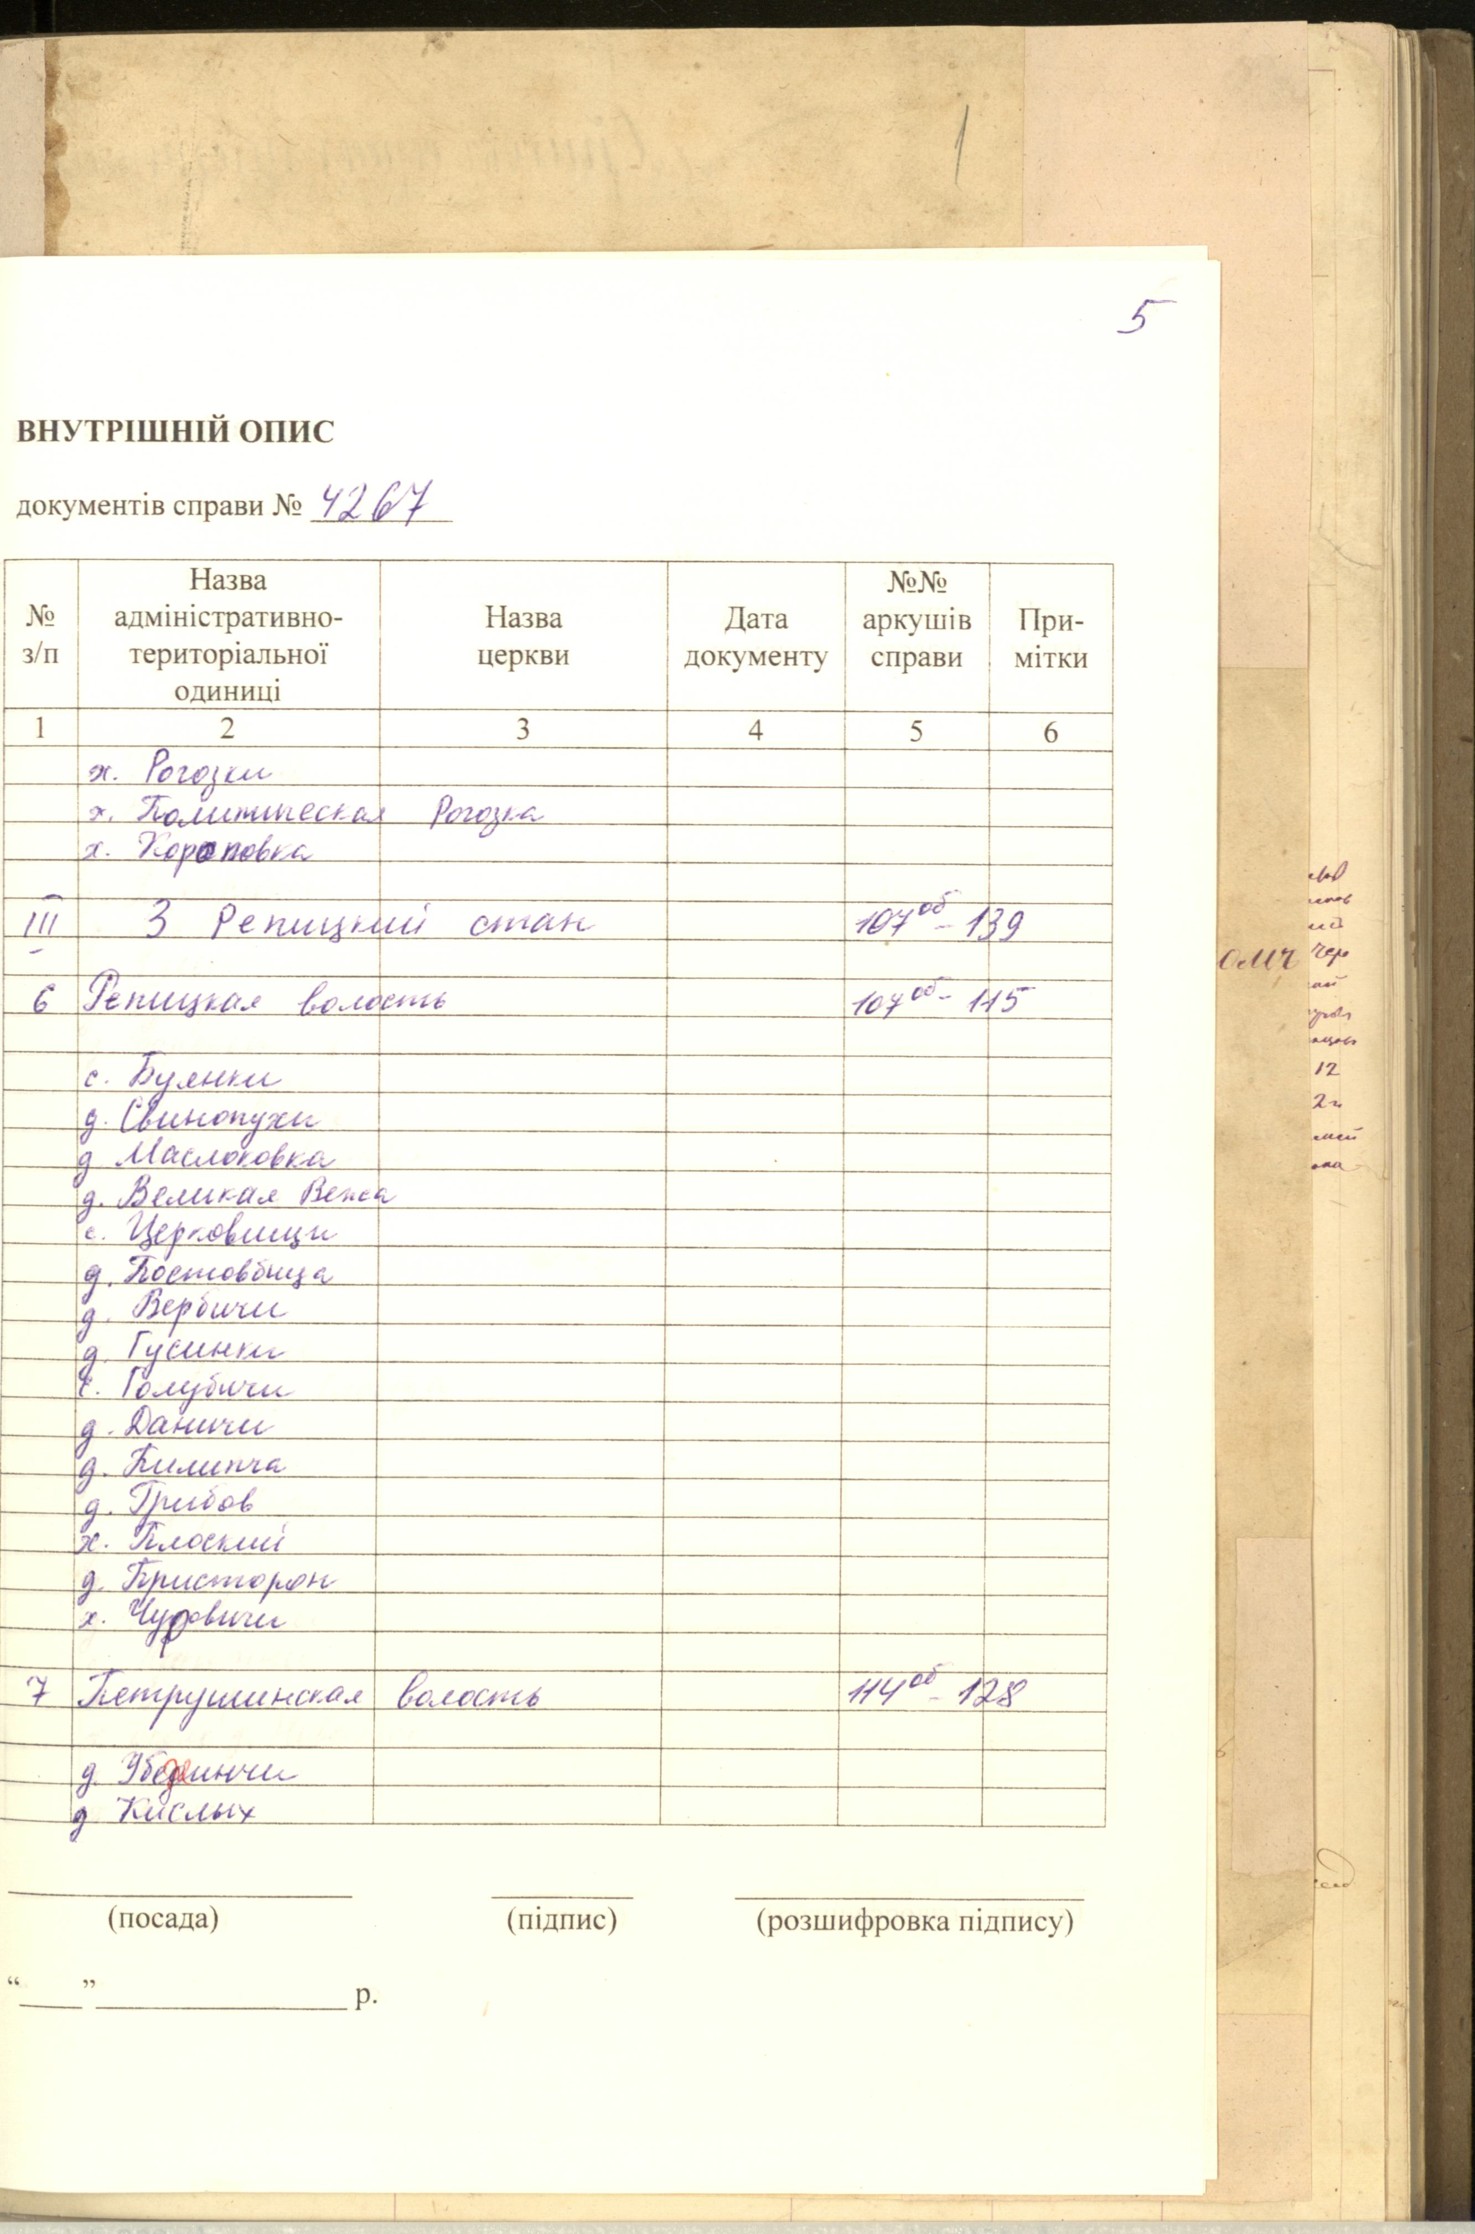 1
5
ВНУТРІШНІЙ ОПИС
документів справи № 4267
№ з/п
Назва адміністративно-територіальної одиниці
Назва церкви
Дата документу
№№ аркушів справи
При-мітки
1 2 3 4 5 6
х. Рогозки
х. Политическая Рогозка
х. Хороповка
III 3 Репицкий стан 107об - 139
6 Репицкая волость 107об - 115
с. Буянки
д. Свинопухи
д Маслоковка
д. Великая Вежа
с. Церковищи
д. Постовбица
д. Вербичи
д. Гусинки
с. Голубичи
д. Даничи
д. Пилипча
д. Грибов
х. Плоский
д. Присторон
х. Чудовичи
7 Петрушинская волость 114об - 128
д.
д Кислых
(посада) (підпис) (розшифровка підпису)
“____”_________________ р.
омч
12